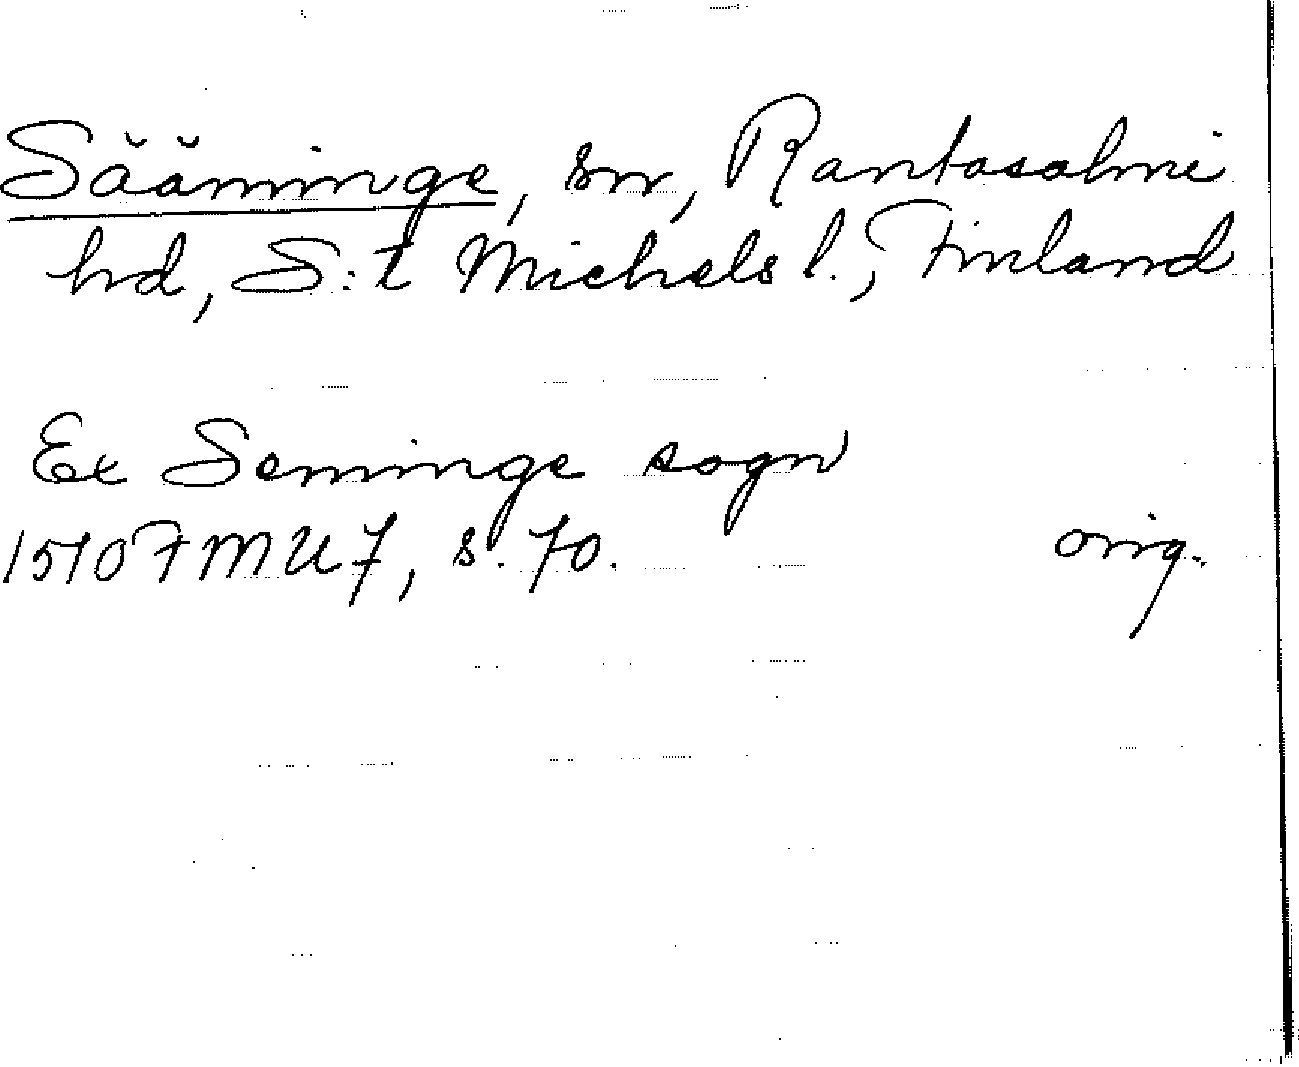 Sääminge, sn, Rantasalmi
hd, S:t Michels l., Finland
Ex Seminge sogn
1510 FMU7, s. 70.
orig.